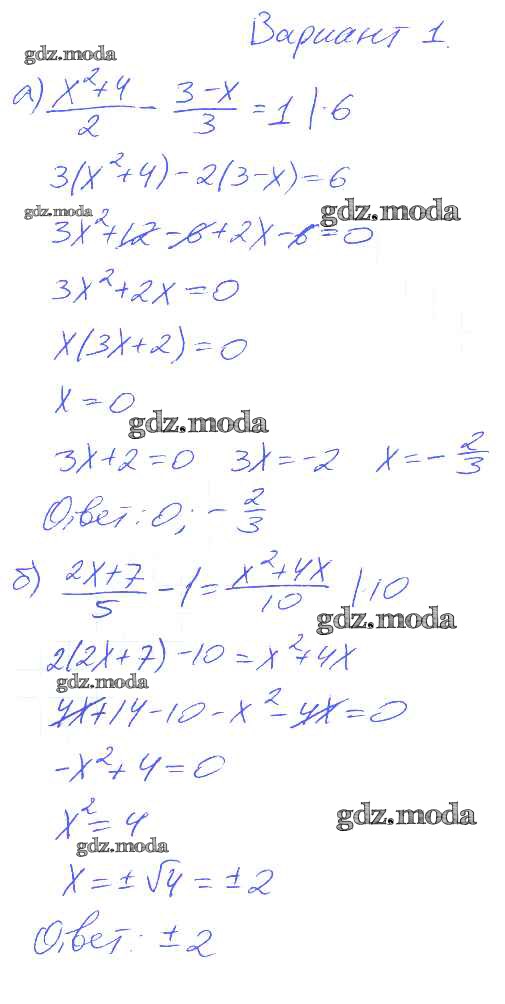 Вариант 1.
gdz.moda
а) (x²+4)/2 - (3-x)/3 = 1 |·6
3(x²+4)-2(3-x)=6
gdz.moda gdz.moda
3x²+12-6+2x-6=0
3x²+2x=0
x(3x+2)=0
x=0
gdz.moda
3x+2=0 3x=-2 x=-2/3
Ответ: 0; -2/3
б) (2x+7)/5 - 1 = (x²+4x)/10 |·10
gdz.moda
2(2x+7)-10=x²+4x
gdz.moda
4x+14-10-x²-4x=0
-x²+4=0
x²=4
gdz.moda
gdz.moda
x=±√4=±2
Ответ: ±2